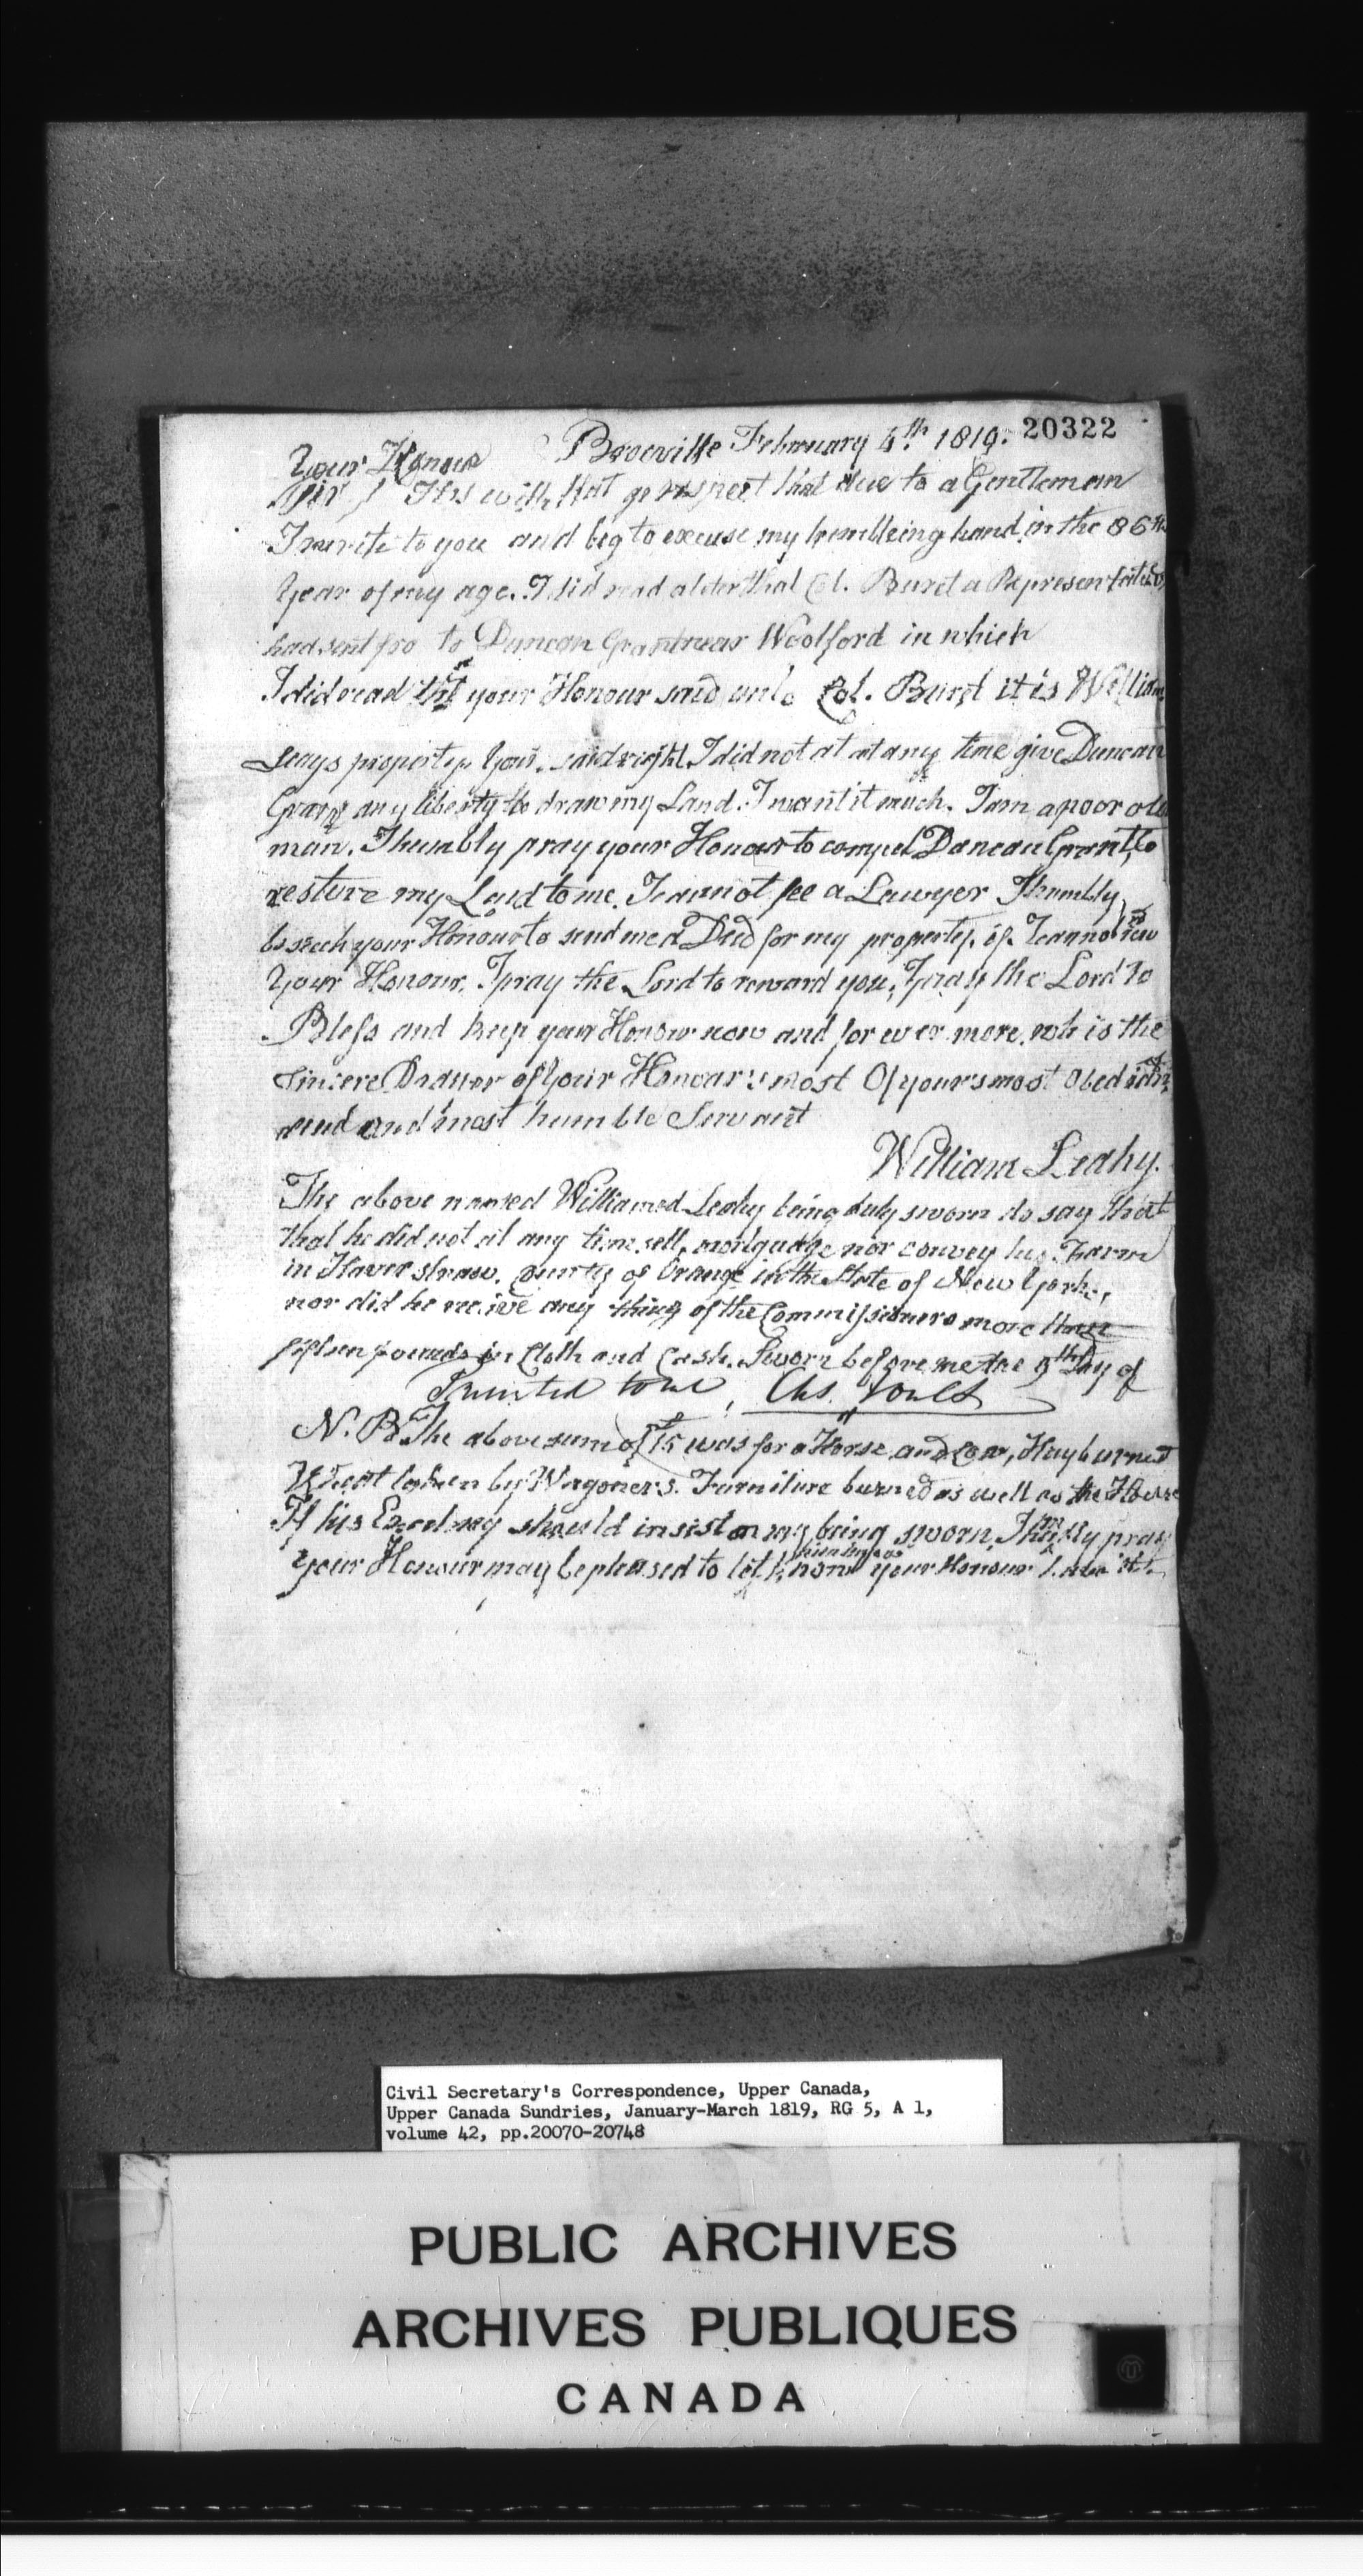 20322
Brocville February 4th 1819.
Your Honour
Sir / It is with that respect that due to a Gentleman
I write to you and beg to excuse my trembleing hand in the 86th
Year of my age. I did read a leter that Col. Buret a Representative
had sent to Duncan Grant near Woolford in which
I did read that your Honour said unto Col. Buret it is William
Leays property. Your said right. I did not at at any time give Duncan
Grant any liberty to draw my Land. I want it much. I am a poor old
man. I humbly pray your Honour to compel Duncan Grant to
restore my Land to me. I cannot fee a Lawyer I humbly
beseech your Honour to send me a Deed for my property. if I cannot
Your Honour. I pray the Lord to reward you, I pray the Lord to
Bless and keep your Honour now and for ever more. who is the
sincere of Your Honours most Of yours most Obedient
and most humble Servant
William Leahy.
The above named William Leahy being duly sworn do say that
that he did not at any time sell, mortguage nor convey his Farm
in Haverstraw. County of Orange in the State of New York,
nor did he receive any thing of the Commissioners more than
fifteen pounds in Cloth and Cash. Sworn before me the 9th Day of
Chs. Jones
N. B. The above sum of £15 was for a Horse and Cow, Hay burned
Wheat taken by Wagoners. Furniture burned as well as the House
If his Excelency should insist on my being sworn, I humbly pray
Your Honour may be pleased to let know your Honour
Civil Secretary's Correspondence, Upper Canada,
Upper Canada Sundries, January-March 1819, RG 5, A 1,
volume 42, pp.20070-20748
PUBLIC ARCHIVES
ARCHIVES PUBLIQUES
CANADA